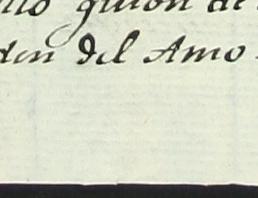 guion de
den del Amo